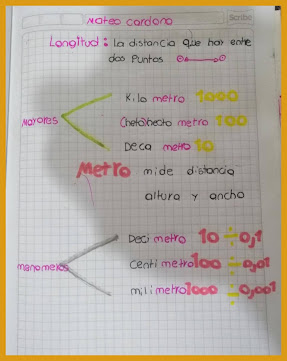 Mateo cardona
Scribe
Longitud: La distancia que hay entre
dos Puntos
Mayores
Kilo metro 1000
(hecto)hecto metro 100
Deca metro 10
Metro mide distancia
altura y ancho
Deci metro 10 ÷ 0,1
Centi metro 100 ÷ 0,01
mili metro 1000 ÷ 0,001